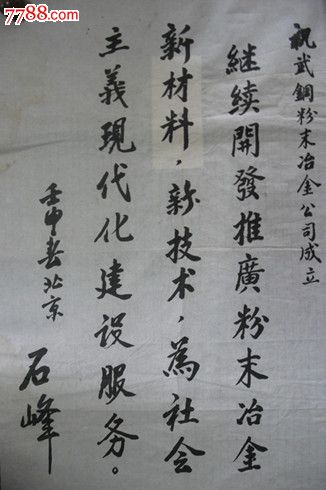 7788.com
祝武鋼粉末冶金公司成立
继续開發推廣粉末冶金
新材料，新技术，為社会
主義現代化建设服务。
壬申春北京
石峰